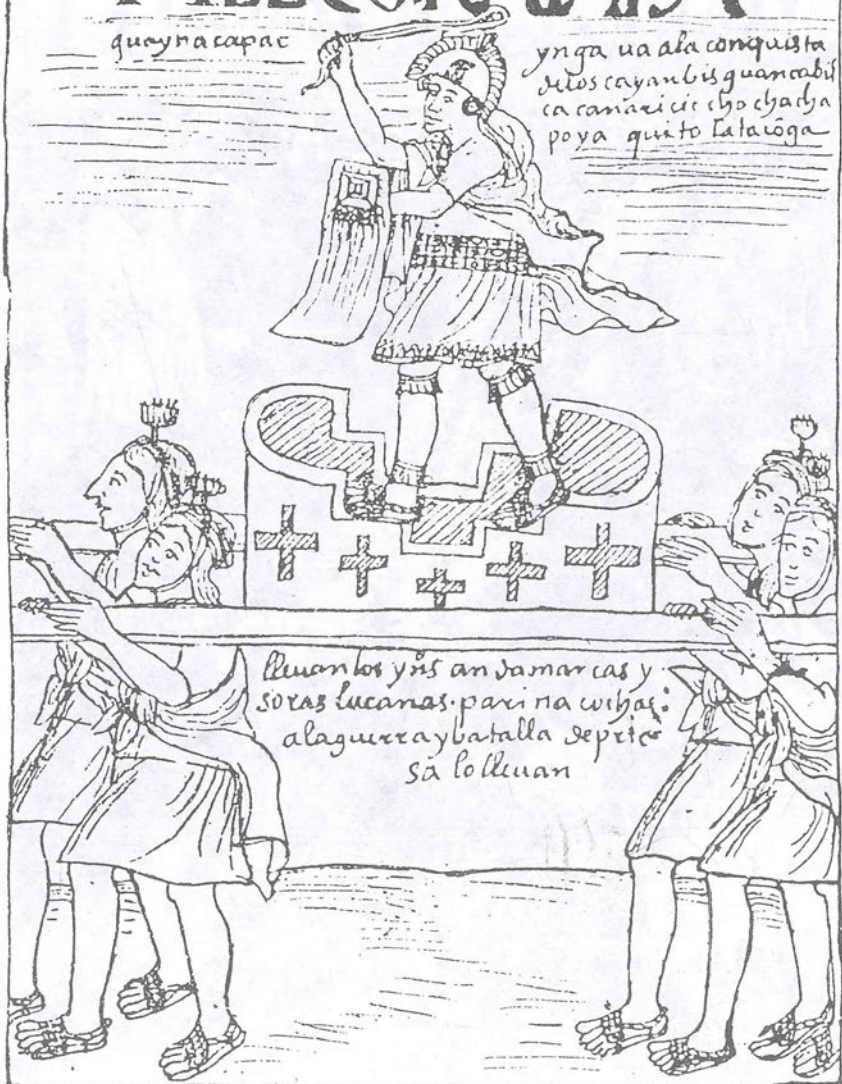 guaynacapac
ynga ua ala conquista
delos cayanbis guancabil
ca canari cic cho chacha
poya quito latacõga
lleuan los yns andamarcas y
soras lucanas. parinacochas:
ala guerra y batalla deprie
sa lo lleuan